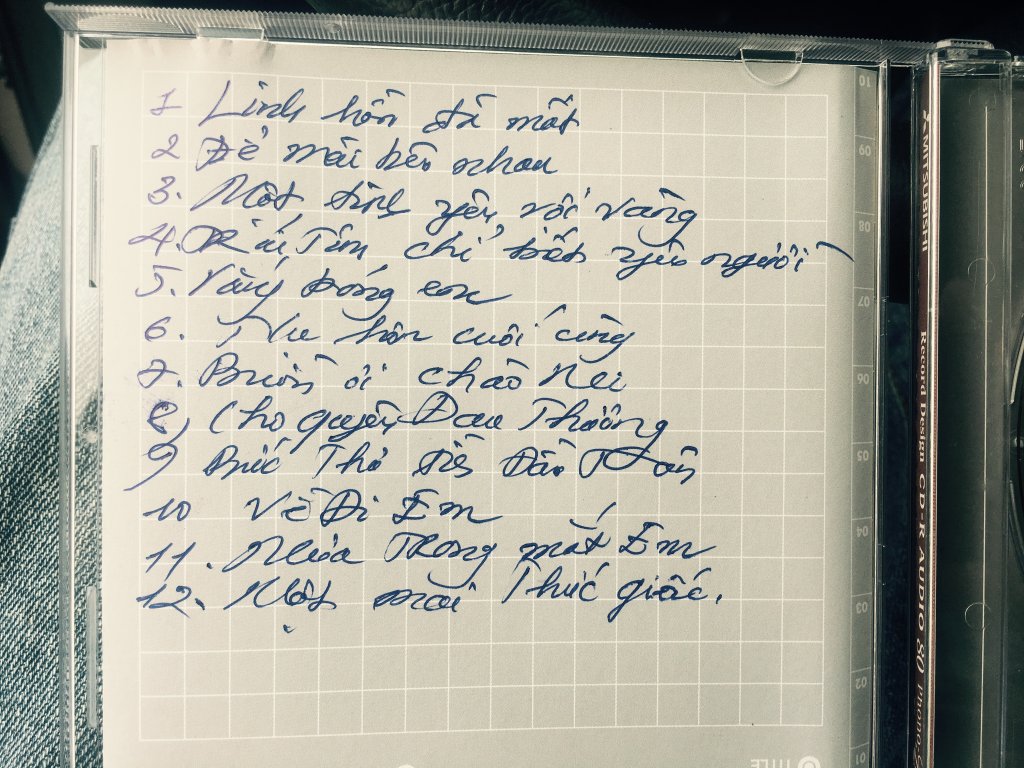 1 Linh hồn đã mất
2 Để mãi bên nhau
3. Một tình yêu vội vàng
4. Trái Tim chỉ biết yêu người
5. Vầng bóng con
6. Thu hôn cuối cùng
7. Buồn ơi chào Mi
8, Cho quyền Đau Thương
9 Bức Thư Tiền Đầu
10 Về Đi Em
11. Mưa Trong mắt Em
12. Một mai Thức giấc.
MITSUBISHI
Record Design CD-R AUDIO 80
TITLE
10
09
08
07
06
05
04
03
02
01